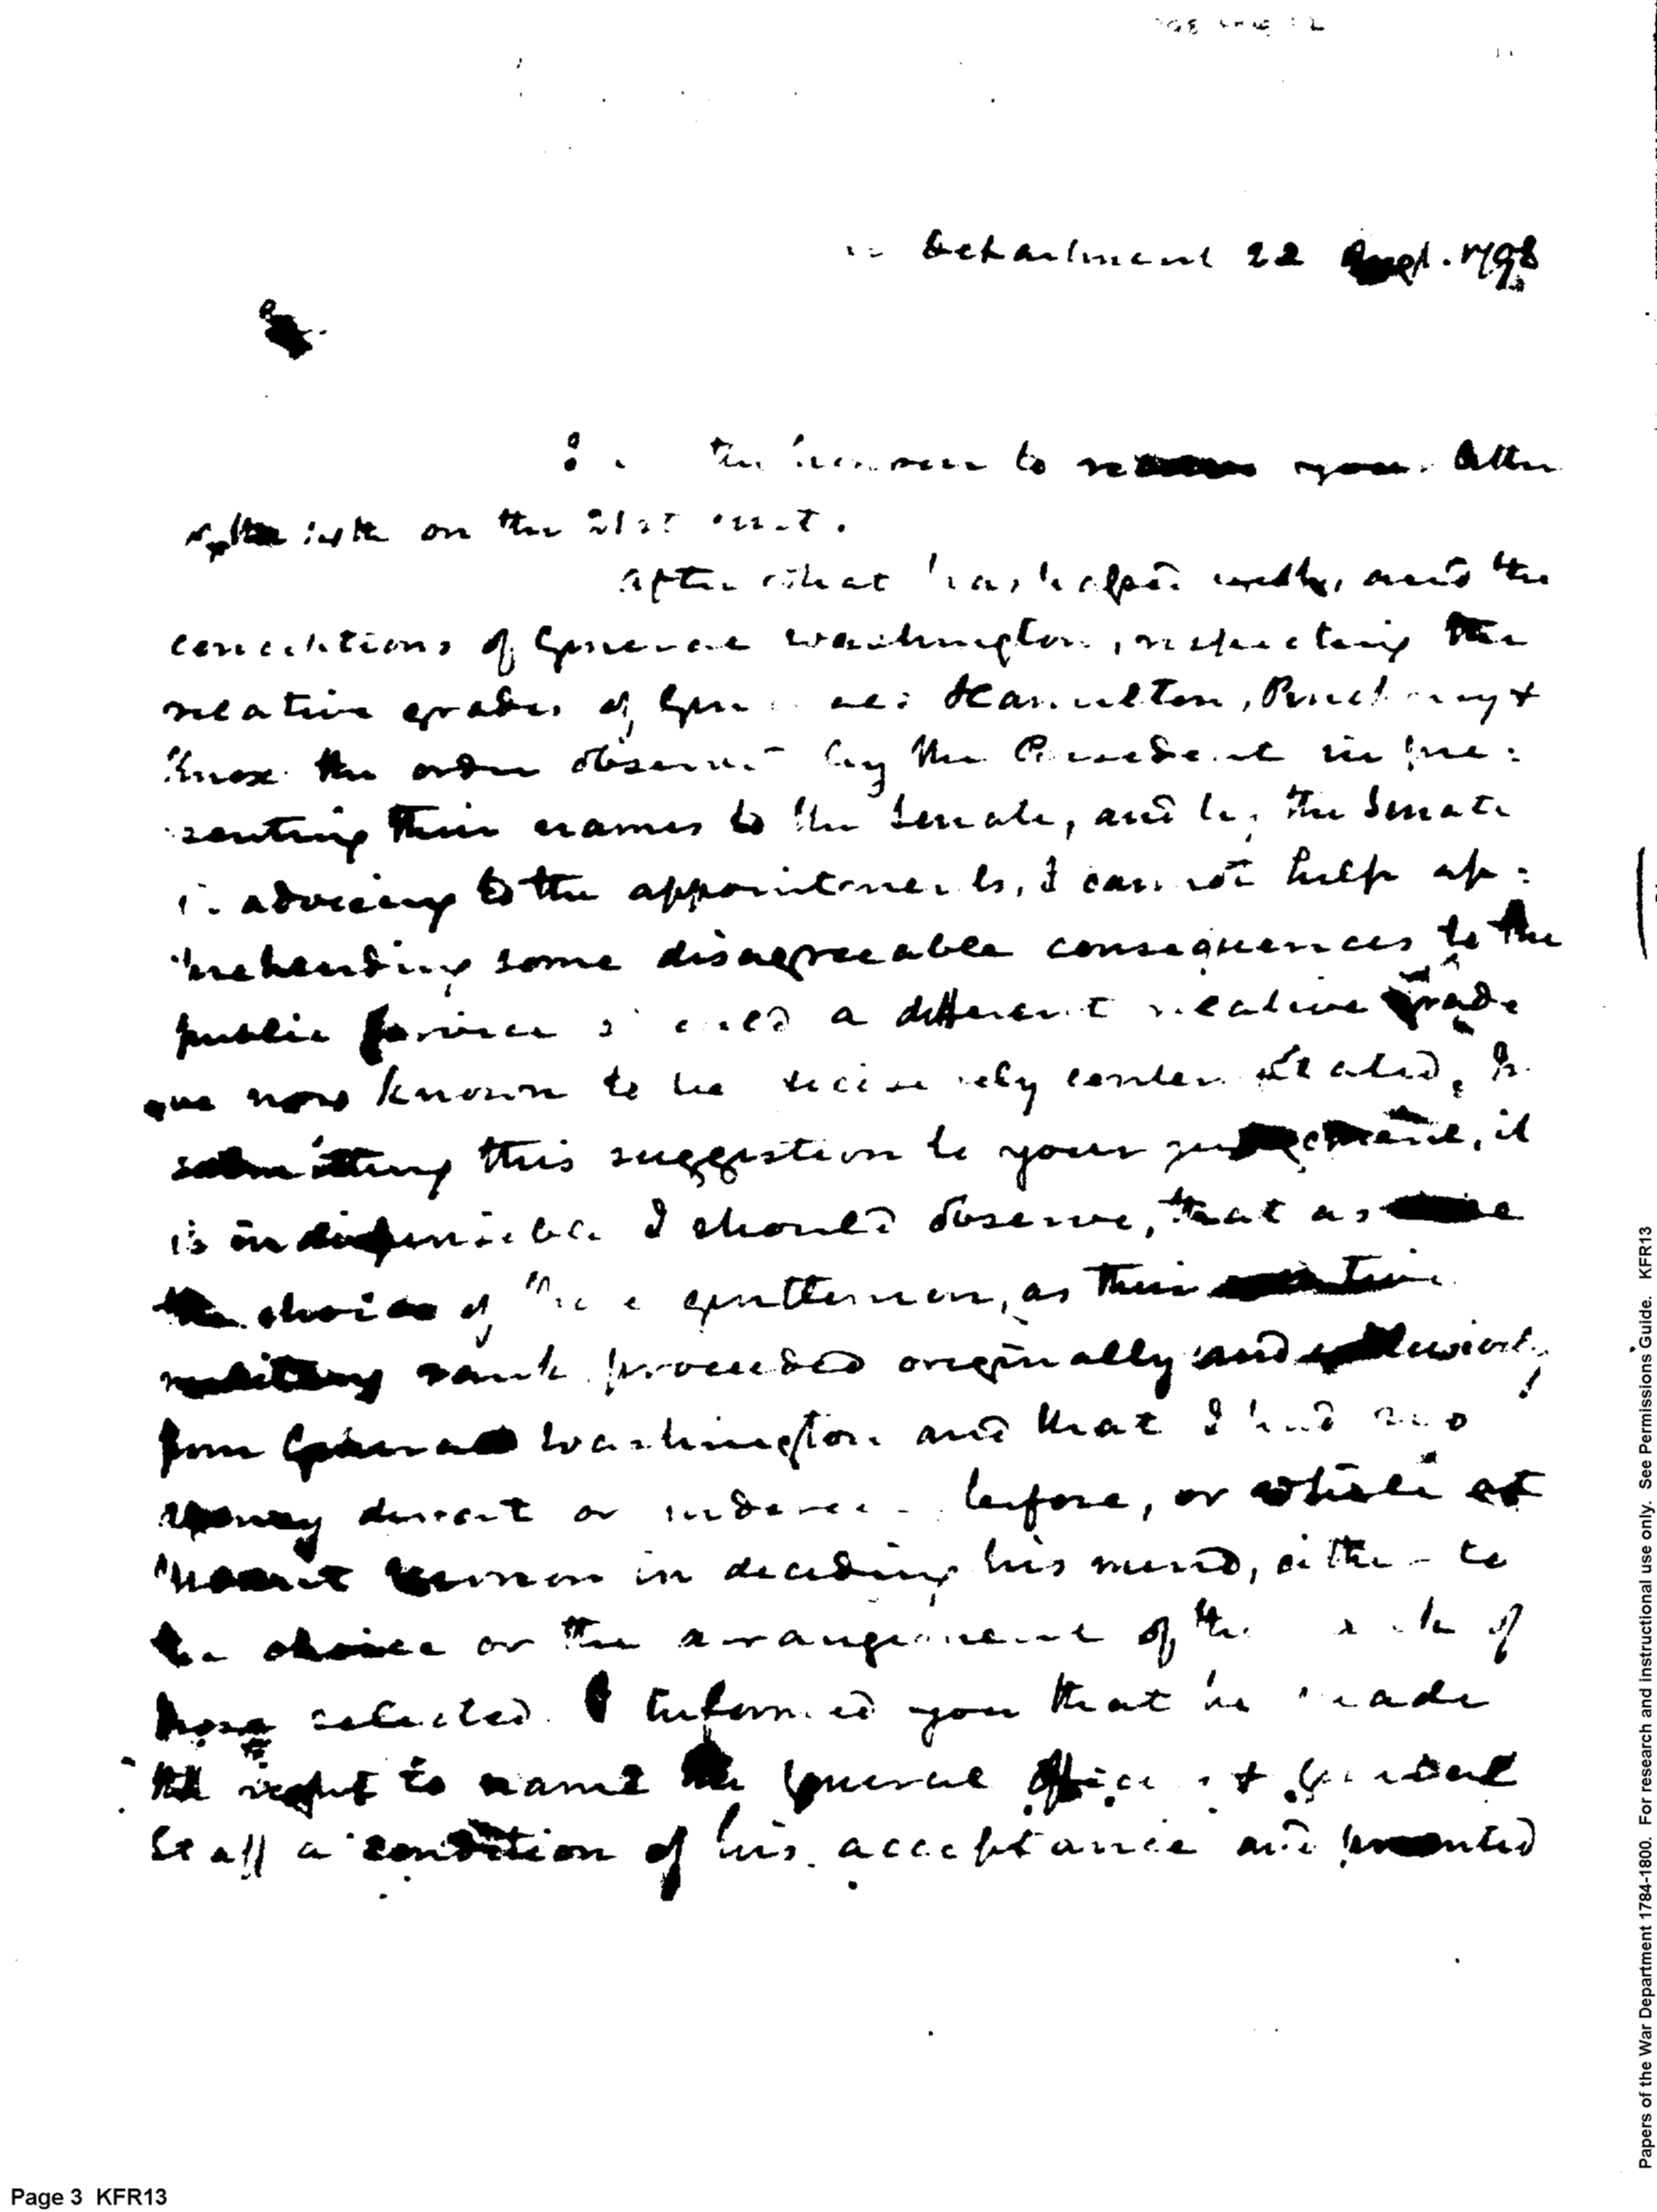 Department 22 Augt. 1798
Sir
the honour to your letter
on the 21st inst.
After what has and the
conditions of General Washington, respecting the
relative grades of Generals Hamilton, Pinckney &
Knox the order observed by the President in pre=
senting their names to the Senate, and by the Senate
in advising to the appointments, I cannot help ap=
prehending some disagreeable consequences to the
public service should a different relative grade
now known to be decisively contemplated, In
submitting this suggestion to your judgement, it
is indispensible I should observe, that as
the choice of these gentlemen, as their relative
military rank proceeded originally and exclusively
from General Washington and that I had no
agency direct or indirect before, or while at
Mount Vernon in deciding his mind, either to
the choice or the arrangement of the rank of
those selected. I informed you that he made
the right to name the General Officers & General
Staff a condition of his acceptance and presented
Papers of the War Department 1784-1800. For research and instructional use only. See Permissions Guide. KFR13
Page 3 KFR13